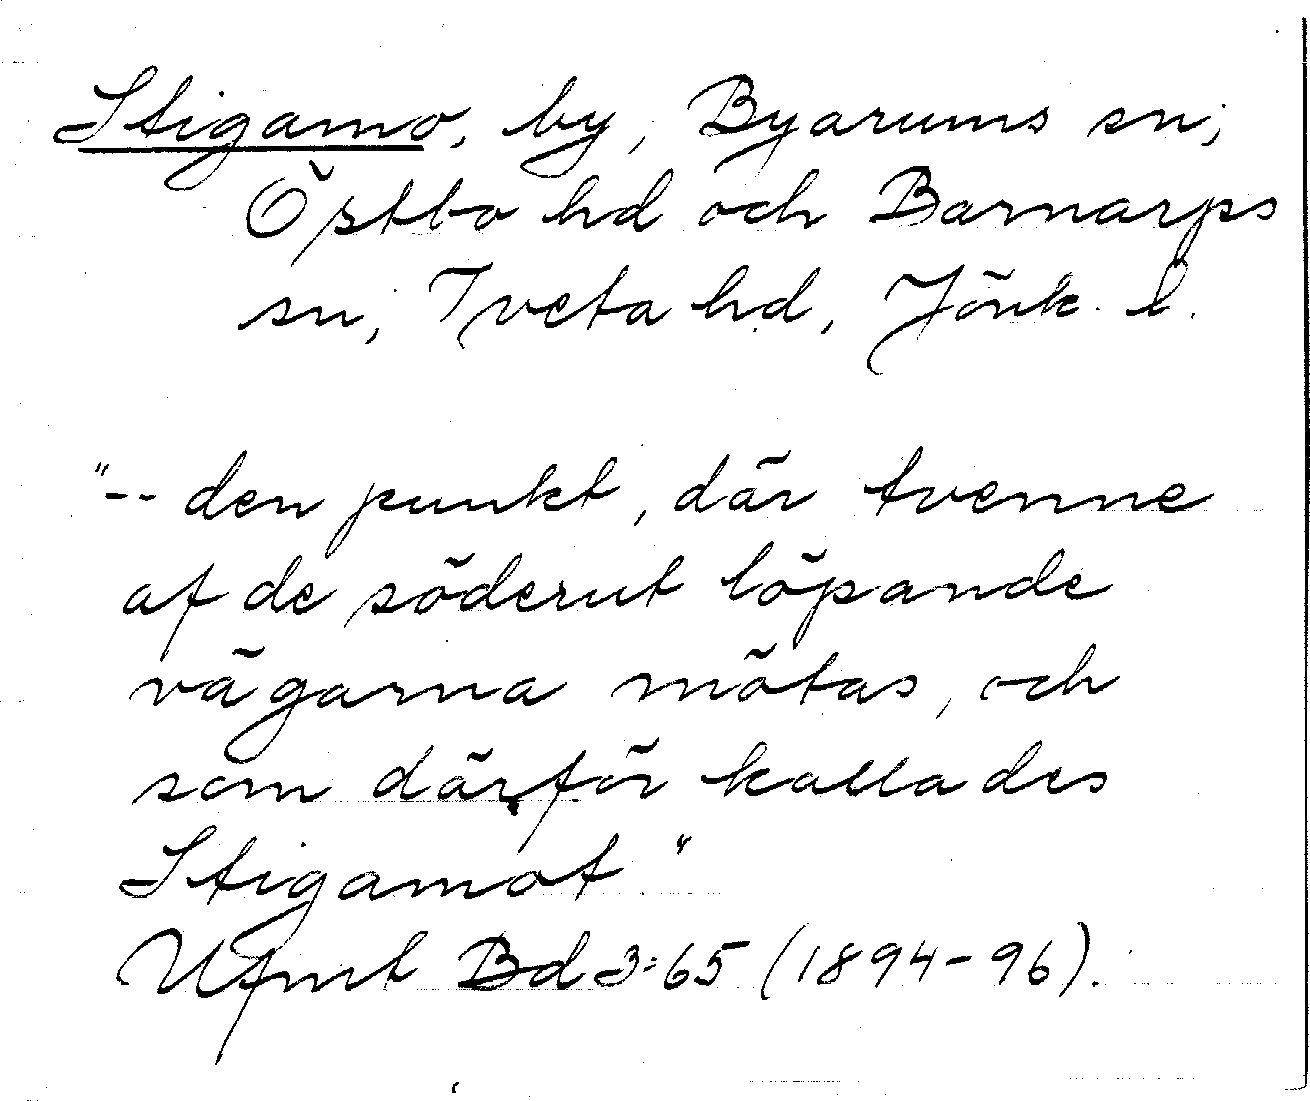 Stigamo, by, Byarums sn;
Östbo hd och Barnarps
sn, Tveta hd, Jönk. l.
"-- den punkt, där tvenne
af de söderut löpande
vägarna mötas, och
som därför kallades
Stigamot"
Ufmt Bd 3:65 (1894-96).